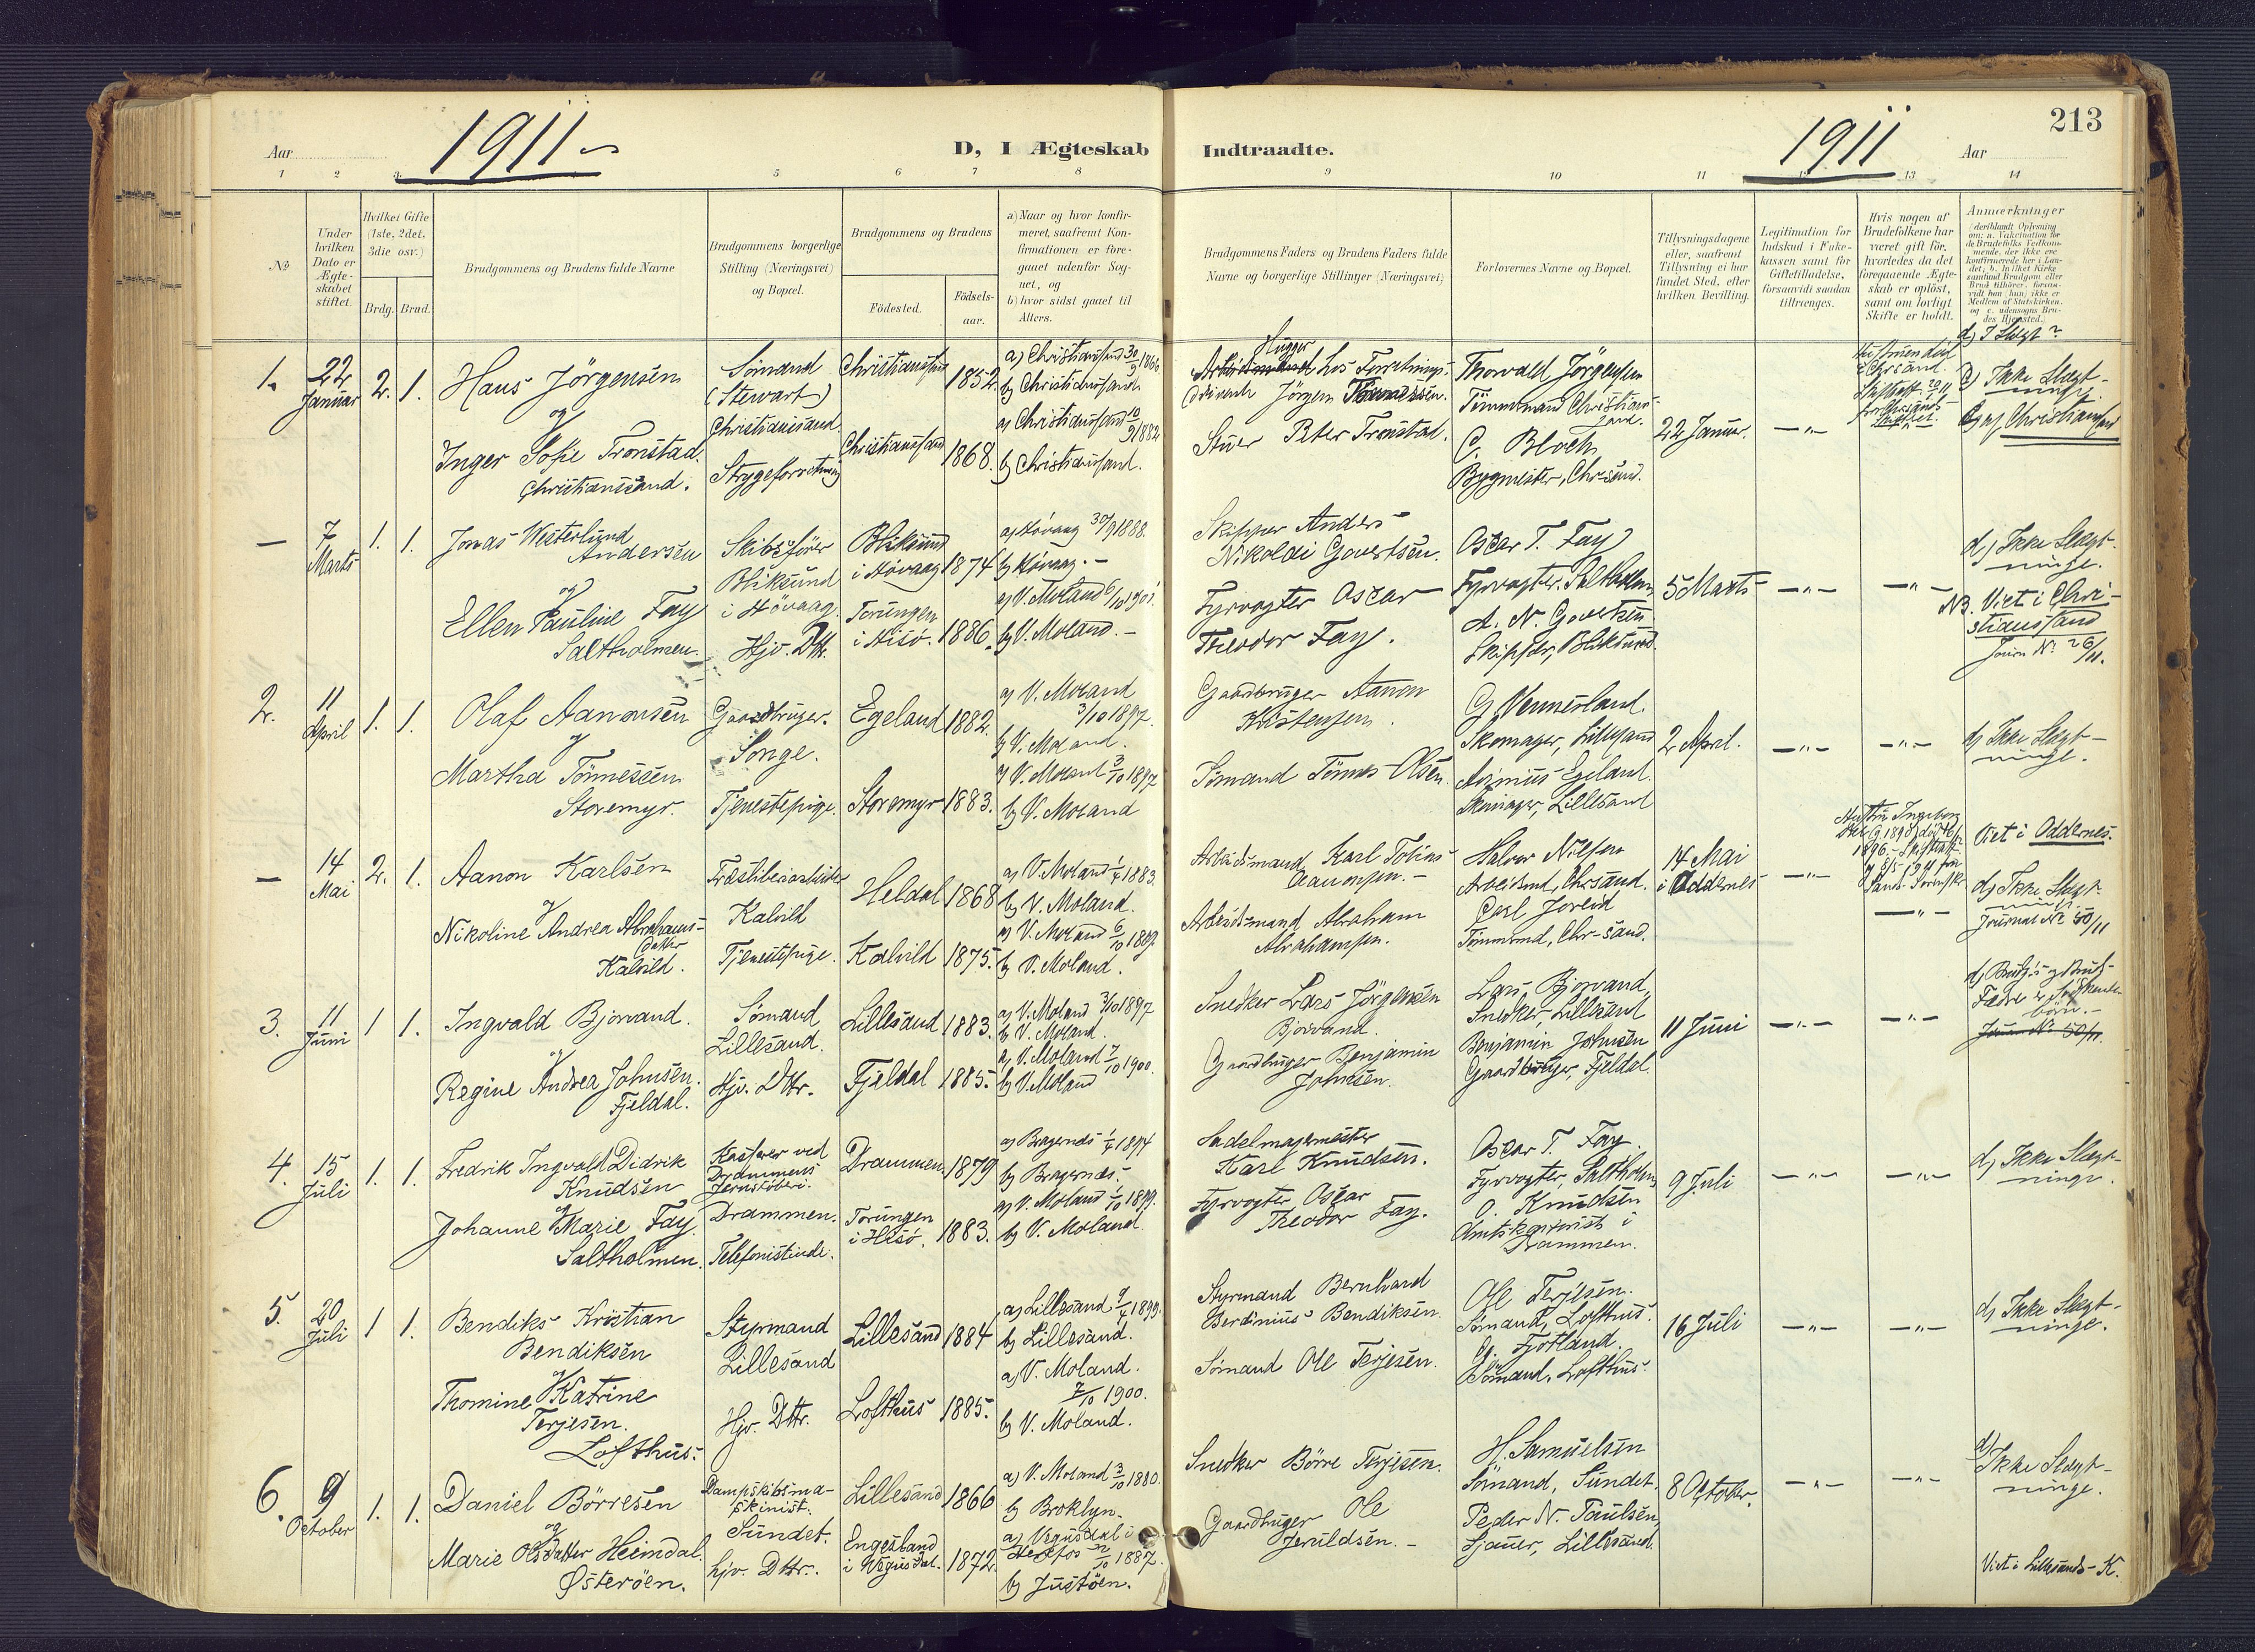 1911
D, I Ægteskab
Aar
1 2 3 5 6 7 8
№
Under hvilken Dato er Ægteskabet stiftet.
Hvilket Gifte (1ste, 2det, 3die osv.)
Brdg. Brud.
Brudgommens og Brudens fulde Navne
Brudgommens borgerlige Stilling (Næringsvei) og Bopæl.
Brudgommens og Brudens
Födested.
Födselsaar.
a) Naar og hvor konfirmeret, saafremt Konfirmationen er foregaaet udenfor Sognet, og
b) hvor sidst gaaet til Alters.
1. 22 Januar 2. 1.
Hans Jörgensen
og
Inger Sofie Tronstad.
Christianssand.
Sömand
(Stewart)
Christianssand
Strygeforretning
Christianssand 1852.
Christianssand 1868.
a) Christianssand 30/9 1866
b) Christianssand
a) Christianssand 10/9 1882
b) Christianssand.
— 7 Marts 1. 1.
Jonas Westerlund
Andersen
og
Ellen Pauline Fay
Saltholmen.
Skibsförer
Bliksund
i Hövaag.
Hjv. Dtr.
Bliksund
i Hövaag 1874
Torungen
i Hisö. 1886.
a) Hövaag 30/9 1888.
b) Hövaag. —
a) V. Moland 6/10 1901.
b) V. Moland. —
2. 11 April 1. 1.
Olaf Aanonsen
og
Martha Tönnesen
Storemyr.
Gaardbruger.
Songe.
Tjenestepige.
Egeland 1882.
Storemyr 1883.
a) V. Moland
3/10 1897.
b) V. Moland.
a) V. Moland 3/10 1897
b) V. Moland
— 14 Mai 2. 1.
Aanon Karlsen
og
Nikoline Andrea Abrahams-
datter
Kalvild.
Træsliberiarbeider
Kalvild
Tjenestepige.
Heldal 1868
Kalvild 1875.
a) V. Moland 1/4 1883.
b) V. Moland.
a) V. Moland 6/10 1889
b) V. Moland.
3. 11 Juni 1 1.
Ingvald Bjorvand.
og
Regine Andrea Johnsen.
Fjeldal.
Sömand
Lillesand.
Hjv. Dttr.
Lillesand 1883.
Fjeldal 1885.
a) V. Moland 3/10 1897
b) V. Moland.
a) V. Moland 7/10 1900.
b) V. Moland
4. 15 Juli 1 1.
Fredrik Ingvald Didrik
Knudsen
og
Johanne Marie Fay.
Saltholmen.
Kasserer ved
Drammens
Jernstöberi.
Drammen.
Telefonistinde.
Drammen. 1879
Torungen
i Hisö. 1883.
a) Bragernes 1/4 1894
b) Bragernes.
a) V. Moland 1/10 1899.
b) V. Moland.
5. 20 Juli 1 1.
Bendiks Kristian
Bendiksen
og
Thomine Katrine
Terjesen.
Lofthus.
Styrmand
Lillesand
Hjv. Dttr.
Lillesand 1884
Lofthus 1885.
a) Lillesand 9/4 1899.
b) Lillesand.
a) V. Moland.
7/10 1900.
b) V. Moland.
6. 9 October 1. 1.
Daniel Börresen
og
Marie Olsdatter Heimdal.
Østeröen.
Dampskibsma-
skinist.
Sundet.
hjv. Dttr.
Lillesand 1866
Engesland
i Vegusdal. 1872.
a) V. Moland 3/10 1880.
b) Broklyn.
a) Vegusdal i
Herefos 2/10 1887.
b) Justöen.
213
1911
Indtraadte.
Aar
9 10 11 12 13 14
Brudgommens Faders og Brudens Faders fulde Navne og borgerlige Stillinger (Næringsvei)
Forlovernes Navne og Bopæl.
Tillysningsdagene eller, saafremt Tillysning ei har fundet Sted, efter hvilken Bevilling.
Legitimation for Indskud i Enkekassen samt for Giftetilladelse, forsaavidt saadan tiltrænges.
Hvis nogen af Brudefolkene har været gift før, hvorledes da det foregaaende Ægteskab er oplöst, samt om lovligt Skifte er holdt.
Anmærkninger
Jörgen Tönnessen.
Stuer Peter Tronstad.
Thorvald Jörgensen
Tömmermand Christians-
sand.
C. Bloch
Bygmester, Chr-sand.
22 Januar. —"—
d) Ikke Slægt-
ninge.
Christianssand
Skipper Anders
Nikolai Govertsen.
Fyrvogter Oscar
Theodor Fay.
Oscar T. Fay
Fyrvogter, Saltholmen
A. N. Govertsen
Skipper, Bliksund.
5 Marts —"— —"—
d) Ikke Slægt-
ninge.
NB. Viet i Chri-
stianssand
Journ No. 26/11.
Gaardbruger Aanon
Kristensen.
Sömand Tönnes Olsen.
G. Vennesland.
Skomager, Lillesand
Asimius Egeland.
Skomager, Lillesand
2 April. —"— —"—
d) Ikke Slægt-
ninge.
Arbeidsmand Karl Tobias
Aanonsen. —
Arbeidsmand Abraham
Abrahamsen.
Halvor Nilsen
Arbeidsmd, Chrsand.
Carl Joreid
Tömmermd, Chr-sand.
14 Mai
i Oddernes
—"— —"—
Viet i Oddernes.
d) Ikke Slægt-
ninge.
Journal No 50/11
Snedker Lars Jörgensen
Bjorvand.
Gaardbruger Benjamin
Johnsen.
Lars Bjorvand,
Snedker, Lillesand
Benjamin Johnsen
Gaardbruger, Fjeldal.
11 Juni —"— —"—
d) Brudg's og Bruds
Fædre er Södskende-
börn. —
Sadelmagermester
Karl Knudsen.
Fyrvogter Oscar
Theodor Fay.
Oscar T. Fay.
Fyrvogter, Saltholmen
O. Knudsen
Drammen.
9 Juli —"— —"—
d) Ikke Slægt-
ninge.
Styrmand Bernhard
Berdinius Bendiksen.
Sömand Ole Terjesen.
Ole Terjesen.
Sömand, Lofthus.
G. Fjotland.
Sömand, Lofthus.
16 Juli —"— —"—
d) Ikke Slægt-
ninge.
Snedker Börre Terjesen.
Gaardbruger Ole
Jeruldsen. —
H. Samuelsen
Sömand, Sundet.
Peder N. Paulsen,
Lillesand.
8 October. —"— —"—
d) Ikke Slægt-
ninge.
Viet i Lillesands-K.